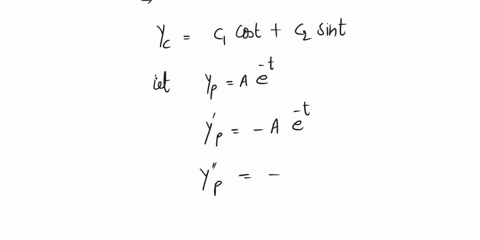 Y_c = c_1 cost + c_2 sint
let Y_p = A e^{-t}
Y'_p = - A e^{-t}
Y''_p = -